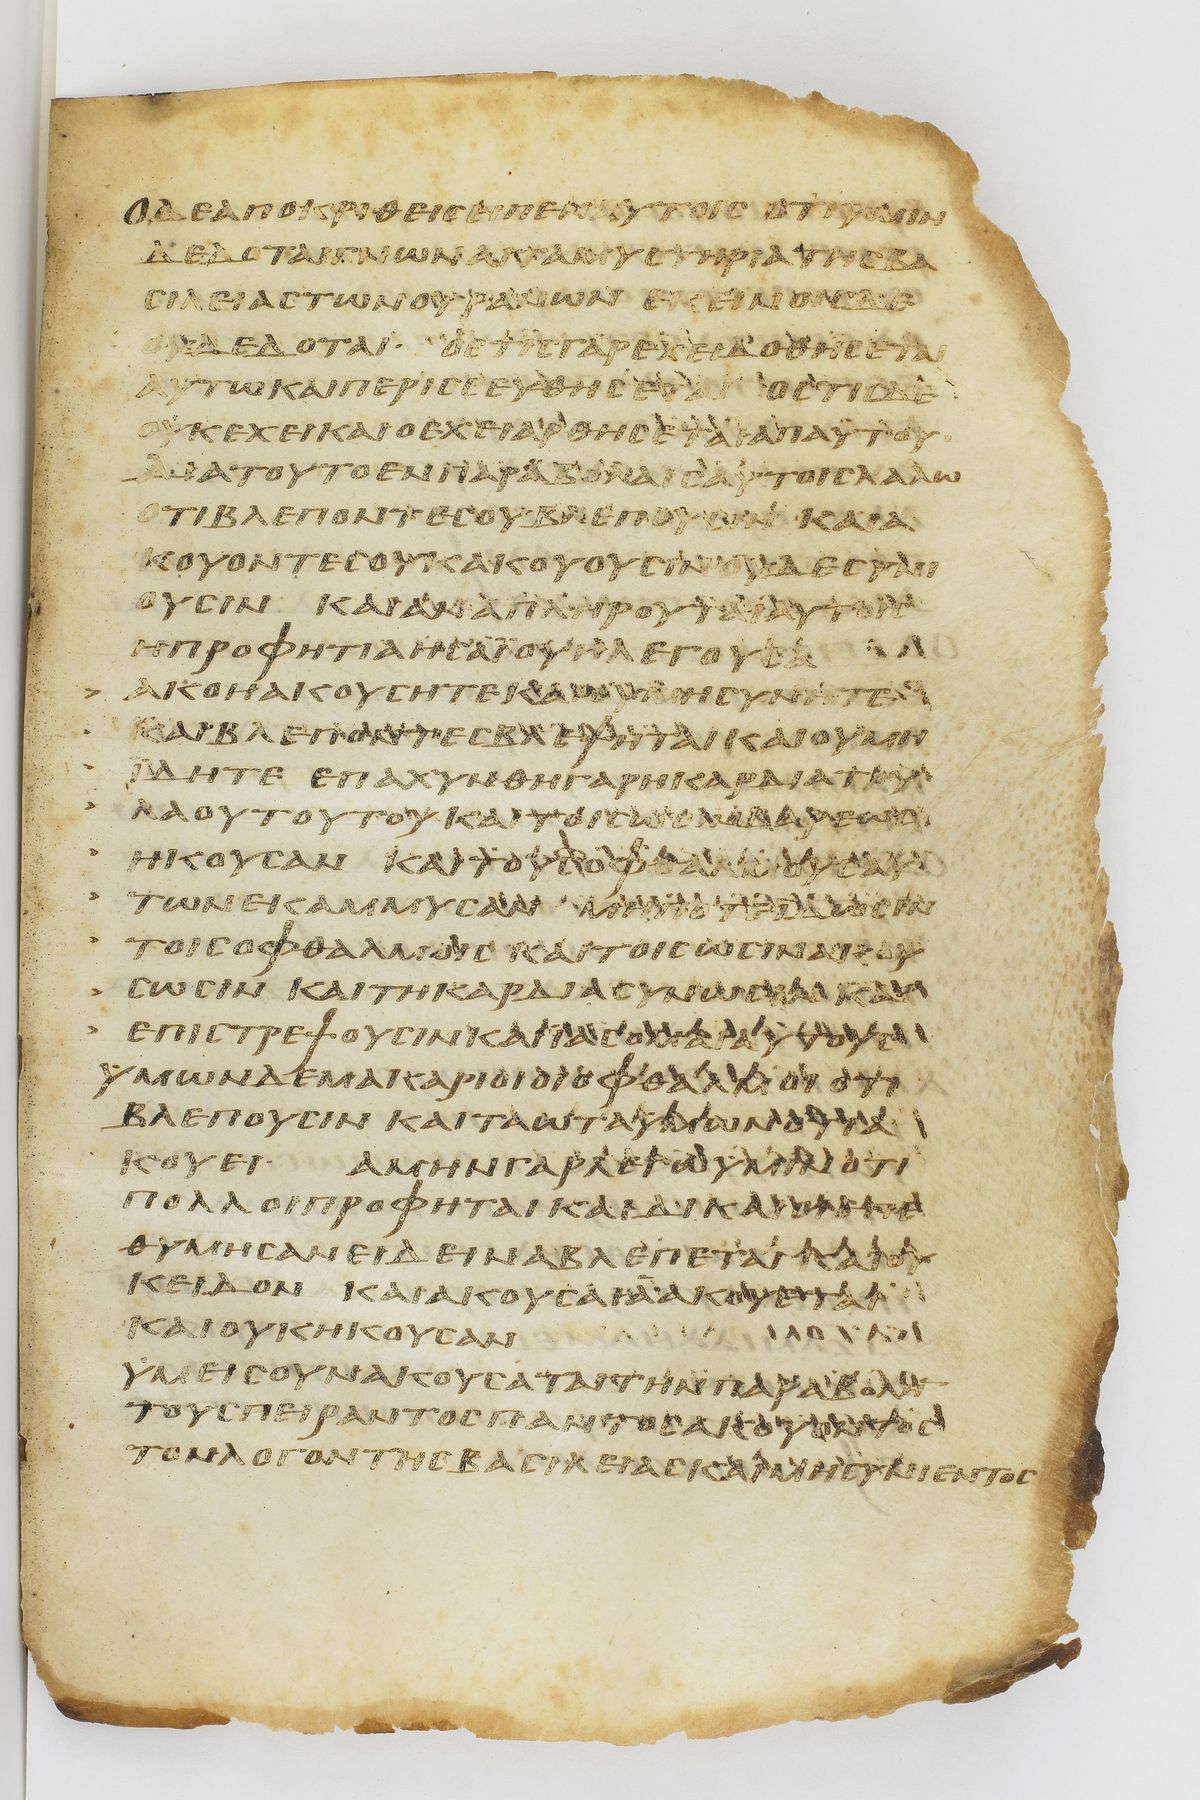 Ο ΔΕ ΑΠΟΚΡΙΘΕΙϹ ΕΙΠΕΝ ΑΥΤΟΙϹ ΟΤΙ ΥΜΙΝ
ΔΕΔΟΤΑΙ ΓΝΩΝΑΙ ΤΑ ΜΥϹΤΗΡΙΑ ΤΗϹ ΒΑ
ϹΙΛΕΙΑϹ ΤΩΝ ΟΥΡΑΝΩΝ ΕΚΕΙΝΟΙϹ ΔΕ
ΟΥ ΔΕΔΟΤΑΙ · ΟϹΤΙϹ ΓΑΡ ΕΧΕΙ ΔΟΘΗϹΕΤΑΙ
ΑΥΤΩ ΚΑΙ ΠΕΡΙϹϹΕΥΘΗϹΕΤΑΙ ΟϹΤΙϹ ΔΕ
ΟΥΚ ΕΧΕΙ ΚΑΙ Ο ΕΧΕΙ ΑΡΘΗϹΕΤΑΙ ΑΠ ΑΥΤΟΥ
ΔΙΑ ΤΟΥΤΟ ΕΝ ΠΑΡΑΒΟΛΑΙϹ ΑΥΤΟΙϹ ΛΑΛΩ
ΟΤΙ ΒΛΕΠΟΝΤΕϹ ΟΥ ΒΛΕΠΟΥϹΙΝ ΚΑΙ Α
ΚΟΥΟΝΤΕϹ ΟΥΚ ΑΚΟΥΟΥϹΙΝ ΟΥΔΕ ϹΥΝΙ
ΟΥϹΙΝ ΚΑΙ ΑΝΑΠΛΗΡΟΥΤΑΙ ΑΥΤΟΙϹ
Η ΠΡΟΦΗΤΙΑ ΗϹΑΙΟΥ Η ΛΕΓΟΥϹΑ
ΑΚΟΗ ΑΚΟΥϹΗΤΕ ΚΑΙ ΟΥ ΜΗ ϹΥΝΗΤΕ
ΚΑΙ ΒΛΕΠΟΝΤΕϹ ΒΛΕΨΗΤΑΙ ΚΑΙ ΟΥ ΜΗ
ΙΔΗΤΕ ΕΠΑΧΥΝΘΗ ΓΑΡ Η ΚΑΡΔΙΑ ΤΟΥ
ΛΑΟΥ ΤΟΥΤΟΥ ΚΑΙ ΤΟΙϹ ΩϹΙΝ ΒΑΡΕΩϹ
ΗΚΟΥϹΑΝ ΚΑΙ ΤΟΥϹ ΟΦΘΑΛΜΟΥϹ ΑΥ
ΤΩΝ ΕΚΑΜΜΥϹΑΝ ΜΗΠΟΤΕ ΙΔΩϹΙΝ
ΤΟΙϹ ΟΦΘΑΛΜΟΙϹ ΚΑΙ ΤΟΙϹ ΩϹΙΝ ΑΚΟΥ
ϹΩϹΙΝ ΚΑΙ ΤΗ ΚΑΡΔΙΑ ϹΥΝΩϹΙΝ ΚΑΙ
ΕΠΙϹΤΡΕΨΟΥϹΙΝ ΚΑΙ ΙΑϹΟΜΑΙ ΑΥΤΟΥϹ
ΥΜΩΝ ΔΕ ΜΑΚΑΡΙΟΙ ΟΙ ΟΦΘΑΛΜΟΙ ΟΤΙ
ΒΛΕΠΟΥϹΙΝ ΚΑΙ ΤΑ ΩΤΑ ΥΜΩΝ ΟΤΙ Α
ΚΟΥΕΙ · ΑΜΗΝ ΓΑΡ ΛΕΓΩ ΥΜΙΝ ΟΤΙ
ΠΟΛΛΟΙ ΠΡΟΦΗΤΑΙ ΚΑΙ ΔΙΚΑΙΟΙ ΕΠΕ
ΘΥΜΗϹΑΝ ΕΙΔΕΙΝ Α ΒΛΕΠΕΤΑΙ ΚΑΙ ΟΥ
Κ ΕΙΔΟΝ ΚΑΙ ΑΚΟΥϹΑΙ Α ΑΚΟΥΕΤΑΙ
ΚΑΙ ΟΥΚ ΗΚΟΥϹΑΝ
ΥΜΕΙϹ ΟΥΝ ΑΚΟΥϹΑΤΑΙ ΤΗΝ ΠΑΡΑΒΟΛΗΝ
ΤΟΥ ϹΠΕΙΡΑΝΤΟϹ ΠΑΝΤΟϹ ΑΚΟΥΟΝΤΟϹ
ΤΟΝ ΛΟΓΟΝ ΤΗϹ ΒΑϹΙΛΕΙΑϹ ΚΑΙ ΜΗ ϹΥΝΙΕΝΤΟϹ